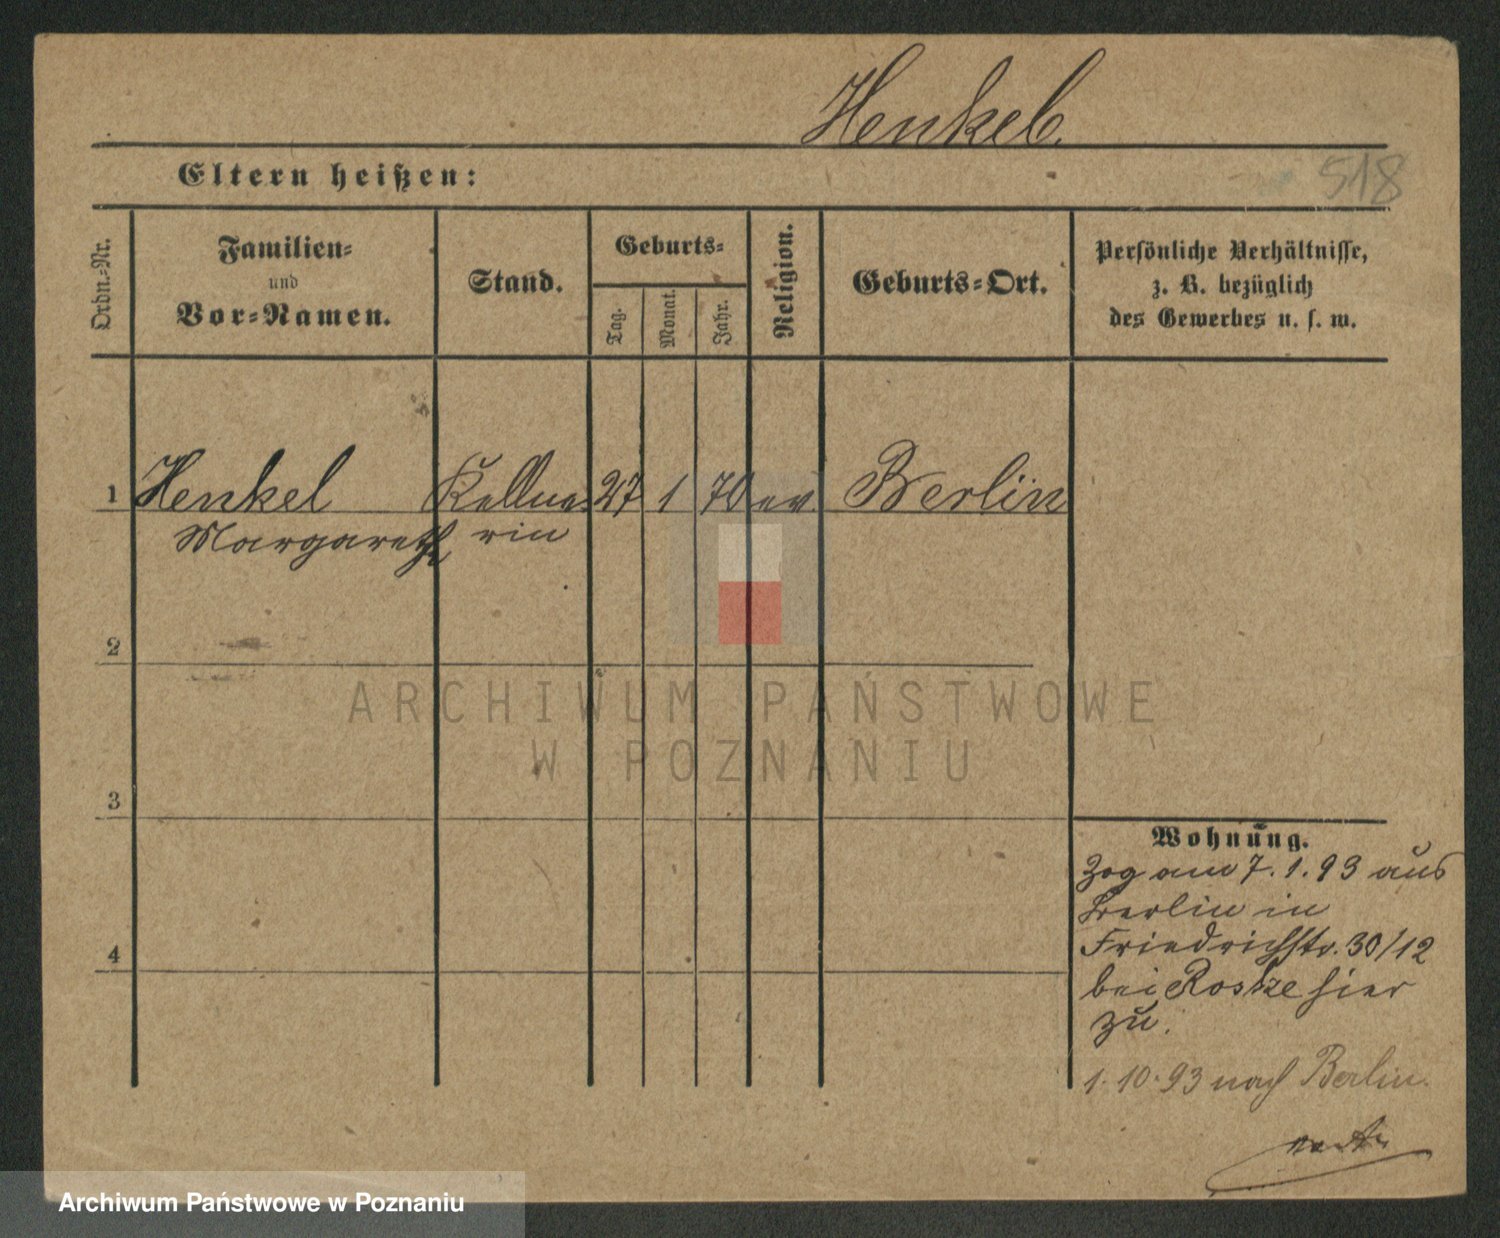 Henkel.
518
Eltern heißen:
Ordn.-Nr.
Familien-
und
Vor-Namen.
Stand.
Geburts-
Tag.
Monat.
Jahr.
Religion.
Geburts-Ort.
Persönliche Verhältnisse,
z. B. bezüglich
des Gewerbes u. s. w.
1 Henkel Kellne- 27 1 70 ev. Berlin
Margareth rin
2
ARCHIWUM PAŃSTWOWE
W POZNANIU
3
Wohnung.
Zog am 7.1.93 aus
Berlin in
Friedrichstr. 30/12
bei Roske hier
zu.
4
1.10.93 nach Berlin.
Archiwum Państwowe w Poznaniu